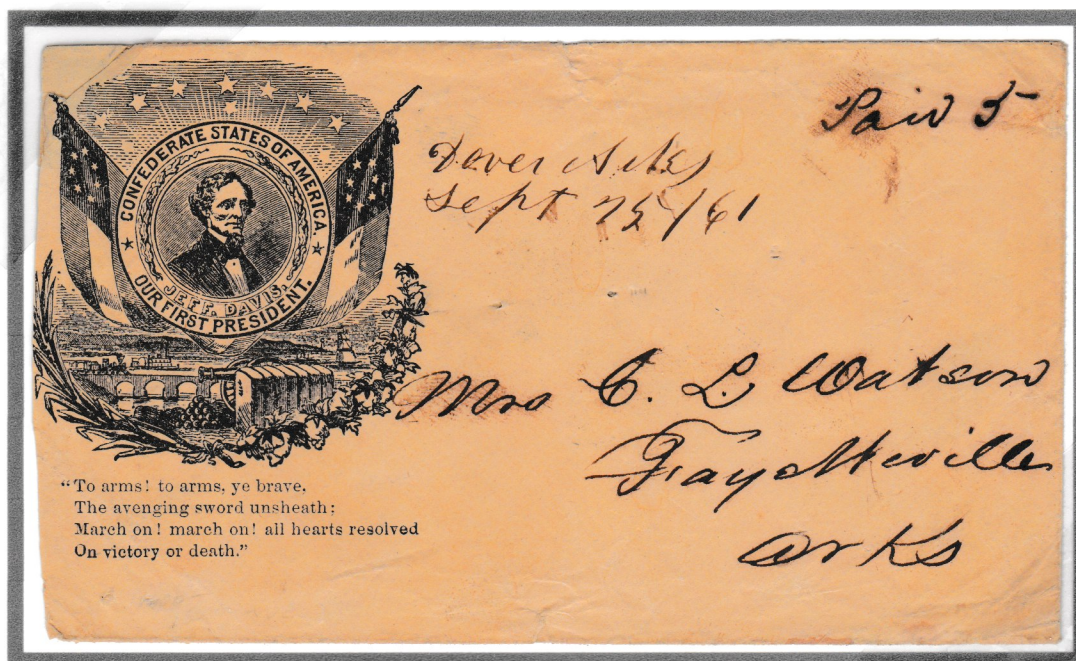 CONFEDERATE STATES OF AMERICA.
JEFF. DAVIS.
OUR FIRST PRESIDENT.
"To arms! to arms, ye brave,
The avenging sword unsheath;
March on! march on! all hearts resolved
On victory or death."
Paid 5
Dover Arks
Sept 25/61
Mrs C. L. Watson
Fayetteville
Arks